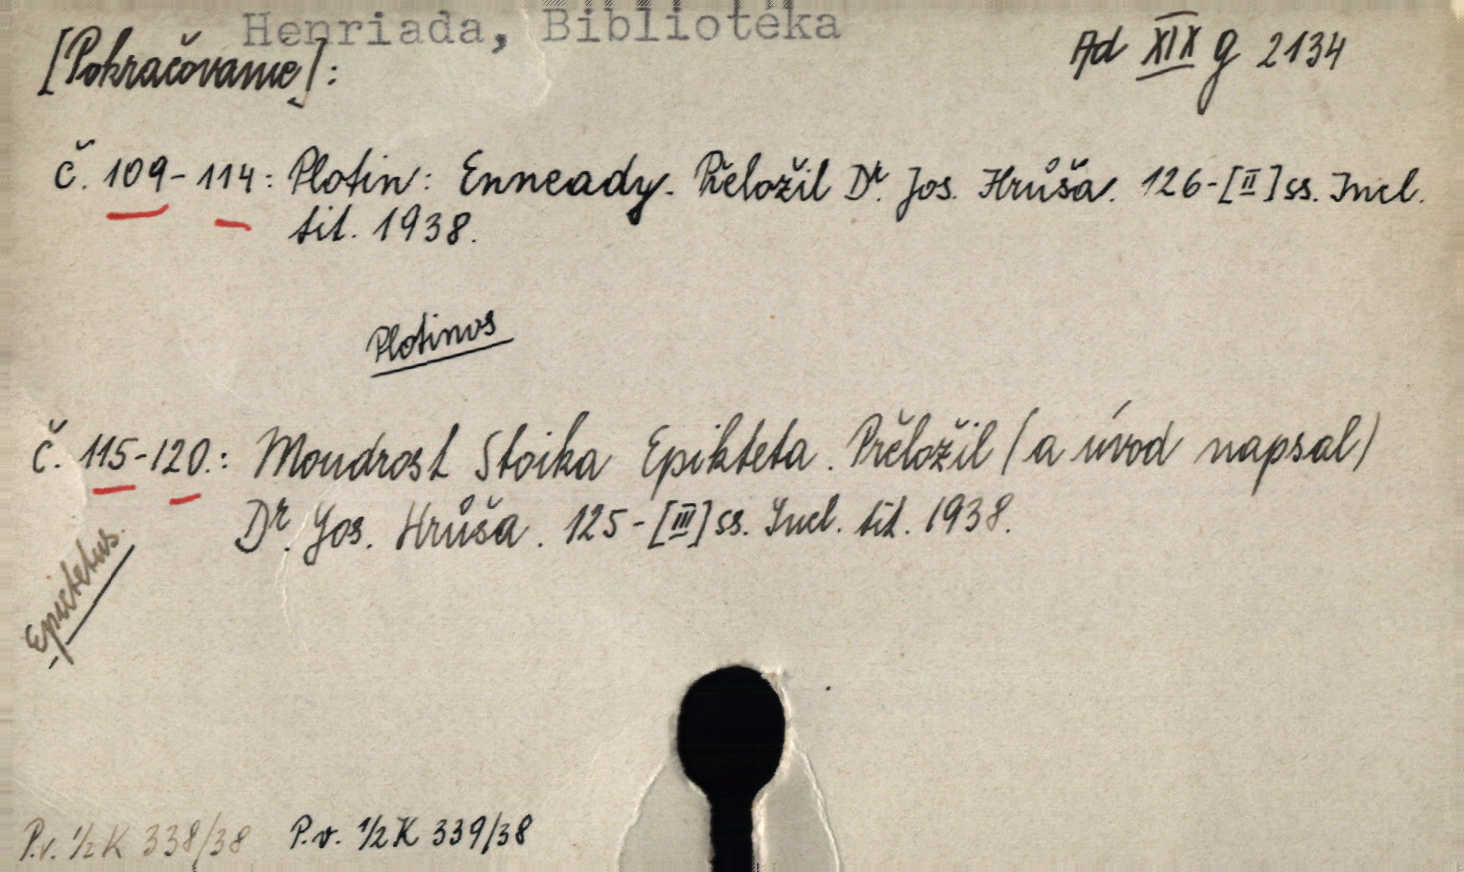 Henriada, Biblioteka
[Pokračovanie]:
Ad XIX g 2134
č. 109-114: Plotin: Enneady. Přeložil Dr. Jos. Hrůša. 126-[II] ss. Incl.
tit. 1938.
Plotinus
č. 115-120.: Moudrost Stoika Epikteta. Přeložil (a úvod napsal)
Dr. Jos. Hrůša. 125-[III] ss. Incl. tit. 1938.
Epictetus.
P.v. 1/2 K 338/38 P.v. 1/2 K 339/38